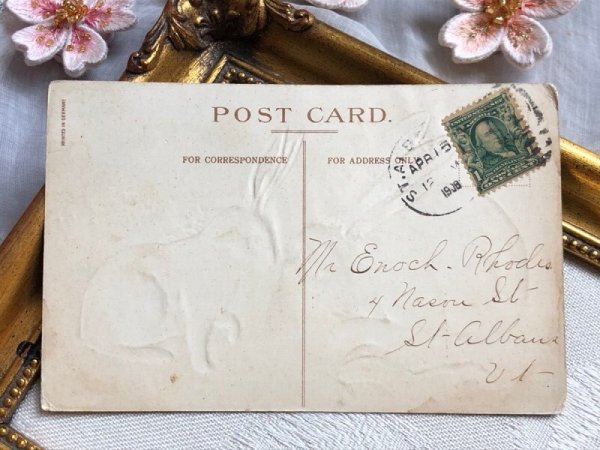 PRINTED IN GERMANY
POST CARD.
FOR CORRESPONDENCE
FOR ADDRESS ONLY
ST. ALB
APR 15
12 M
1908
1
Mr Enoch. Rhodes
4 Nason St
St-Albans
Vt-